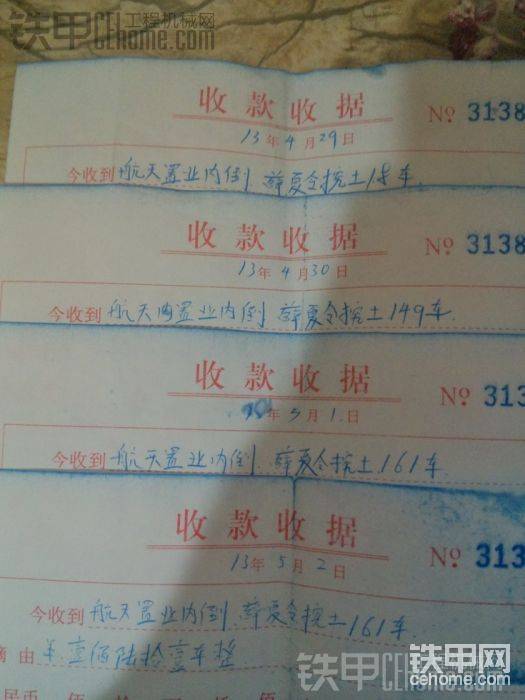 铁甲工程机械网
CEhome.com
收款收据
No 3138
13年4月29日
今收到 航天置业内倒 薛夏令挖土18车
收款收据
No 3138
13年4月30日
今收到 航天置业内倒 薛夏令挖土149车
收款收据
No 313
年5月1日
今收到 航天置业内倒 薛夏令挖土161车
收款收据
No 313
13年5月2日
今收到 航天置业内倒 薛夏令挖土161车
摘由 壹佰陆拾壹车整
民币 佰 拾 万 仟 佰
铁甲网
CEhome.com